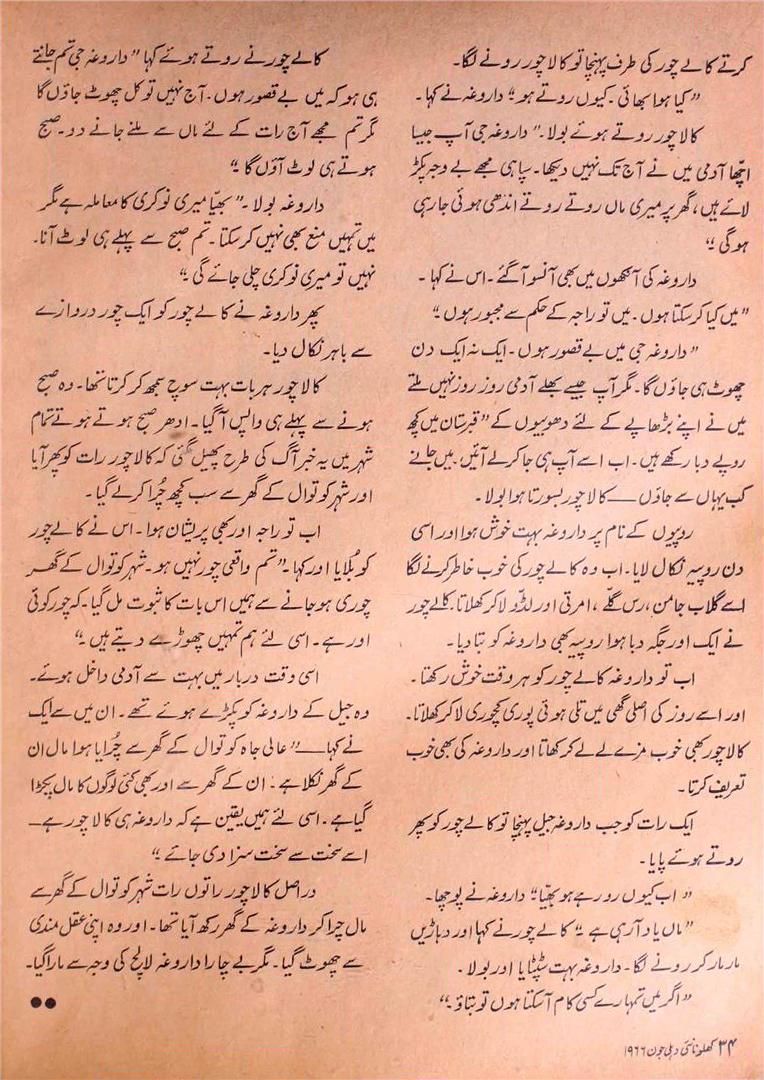 کرتے کالے چور کی طرف پہنچا تو کالا چور رونے لگا۔
”کیا ہوا بھائی۔ کیوں روتے ہو“ داروغہ نے کہا۔
کالا چور روتے ہوئے بولا۔ ”داروغہ جی آپ جیسا
اچھا آدمی میں نے آج تک نہیں دیکھا۔ سپاہی مجھے بے وجہ پکڑ
لائے ہیں، گھر پر میری ماں روتے روتے اندھی ہوئی جارہی
ہوگی“
داروغہ کی آنکھوں میں بھی آنسو آگئے۔ اس نے کہا۔
”میں کیا کرسکتا ہوں۔ میں تو راجہ کے حکم سے مجبور ہوں“
”داروغہ جی میں بے قصور ہوں۔ ایک نہ ایک دن
چھوٹ ہی جاؤں گا۔ مگر آپ جیسے بھلے آدمی روز روز نہیں ملتے
میں نے اپنے بڑھاپے کے لئے دھوبیوں کے ”قبرستان میں کچھ
روپے دبا رکھے ہیں۔ اب اسے آپ ہی جا کر لے آئیں۔ میں جانے
کب یہاں سے جاؤں — کالا چور بسورتا ہوا بولا۔
روپیوں کے نام پر داروغہ بہت خوش ہوا اور اسی
دن روپیہ نکال لایا۔ اب وہ کالے چور کی خوب خاطر کرنے لگا
اسے گلاب جامن، رس گلے، امرتی اور لڈّو لاکر کھلاتا۔ کالے چور
نے ایک اور جگہ دبا ہوا روپیہ بھی داروغہ کو بتا دیا۔
اب تو داروغہ کالے چور کو ہر وقت خوش رکھتا۔
اور اسے روز کی اصلی گھی میں تلی ہوئی پوری کچوری لا کر کھلاتا۔
کالا چور بھی خوب مزے لے لے کر کھاتا اور داروغہ کی بھی خوب
تعریف کرتا۔
ایک رات کو جب داروغہ جیل پہنچا تو کالے چور کو پھر
روتے ہوئے پایا۔
”اب کیوں رو رہے ہو بھیّا“ داروغہ نے پوچھا۔
”ماں یاد آرہی ہے“ کالے چور نے کہا اور دہاڑیں
مار مار کر رونے لگا۔ داروغہ بہت سٹپٹایا اور بولا۔
”اگر میں تمہارے کسی کام آسکتا ہوں تو بتاؤ۔“
کالے چور نے روتے ہوئے کہا ”داروغہ جی تم جانتے
ہی ہو کہ میں بے قصور ہوں۔ آج نہیں تو کل چھوٹ جاؤں گا
مگر تم مجھے آج رات کے لئے ماں سے ملنے جانے دو۔ صبح
ہوتے ہی لوٹ آؤں گا۔“
داروغہ بولا۔ ”بھیّا میری نوکری کا معاملہ ہے مگر
میں تمہیں منع بھی نہیں کرسکتا۔ تم صبح سے پہلے ہی لوٹ آنا۔
نہیں تو میری نوکری چلی جائے گی“
پھر داروغہ نے کالے چور کو ایک چور دروازے
سے باہر نکال دیا۔
کالا چور ہر بات بہت سوچ سمجھ کر کرتا تھا۔ وہ صبح
ہونے سے پہلے ہی واپس آگیا۔ ادھر صبح ہوتے ہوتے تمام
شہر میں یہ خبر آگ کی طرح پھیل گئی کہ کالا چور رات کو پھر آیا
اور شہر کوتوال کے گھر سے سب کچھ چُرا کر لے گیا۔
اب تو راجہ اور بھی پریشان ہوا۔ اس نے کالے چور
کو بُلایا اور کہا۔ ”تم واقعی چور نہیں ہو۔ شہر کوتوال کے گھر
چوری ہو جانے سے ہمیں اس بات کا ثبوت مل گیا۔ کہ چور کوئی
اور ہے۔ اسی لئے ہم تمہیں چھوڑے دیتے ہیں۔“
اسی وقت دربار میں بہت سے آدمی داخل ہوئے۔
وہ جیل کے داروغہ کو پکڑے ہوئے تھے۔ ان میں سے ایک
نے کہا — ”عالی جاہ کوتوال کے گھر سے چُرایا ہوا مال ان
کے گھر نکلا ہے۔ ان کے گھر سے اور بھی کئی لوگوں کا مال پکڑا
گیا ہے۔ اسی لئے ہمیں یقین ہے کہ داروغہ ہی کالا چور ہے —
اسے سخت سے سخت سزا دی جائے“
دراصل کالا چور راتوں رات شہر کوتوال کے گھر سے
مال چرا کر داروغہ کے گھر رکھ آیا تھا۔ اور وہ اپنی عقل مندی
سے چھوٹ گیا۔ مگر بے چارا داروغہ لالچ کی وجہ سے مارا گیا۔
۳۴ کھلونا نئی دہلی جون ۱۹۶۶